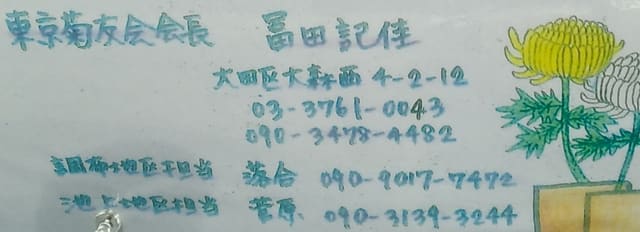 東京菊友会会長 冨田記佳
大田区大森西4-2-12
03-3761-0043
090-3478-4482
調布地区担当 落合 090-9017-7472
池上地区担当 菅原 090-3139-3244